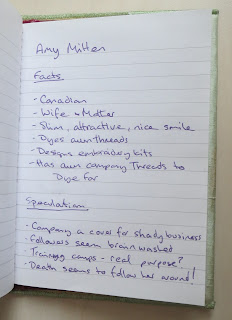 Amy Mitten
Facts
- Canadian
- Wife & Mother
- Slim, attractive, nice smile
- Dyes own threads
- Designs embroidery kits
- Has own company Threads to
Dye For
Speculation
- Company a cover for shady business
- Followers seem brain washed
- Training camps - real purpose?
- Death seems to follow her around!